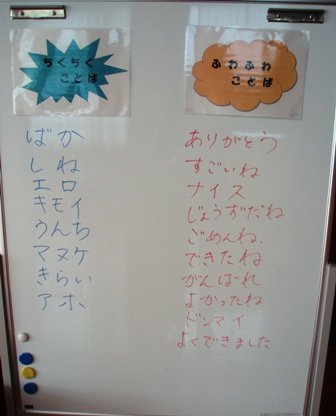 ちくちく
ことば
ばか
しね
エロ
キモイ
うんち
マヌケ
きらい
アホ、
ふわふわ
ことば
ありがとう
すごいね
ナイス
じょうずだね
ごめんね.
できたね
がんばれ
よかったね
ドンマイ
よくできました